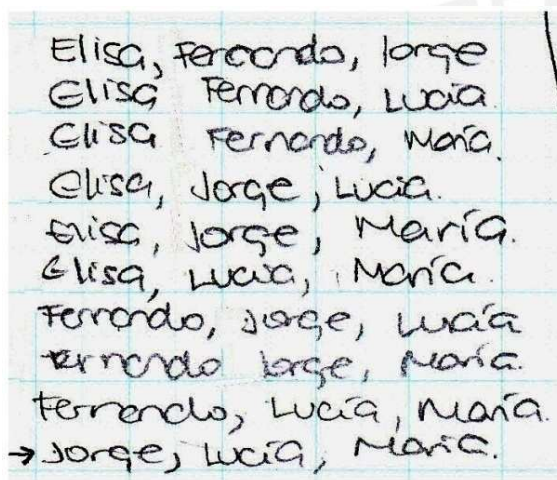 Elisa, Fernando, Jorge
Elisa Fernando, Lucía
Elisa Fernando, María.
Elisa, Jorge, Lucía.
Elisa, Jorge, María.
Elisa, Lucía, María.
Fernando, Jorge, Lucía
Fernando Jorge, María.
Fernando, Lucía, María.
→ Jorge, Lucía, María.